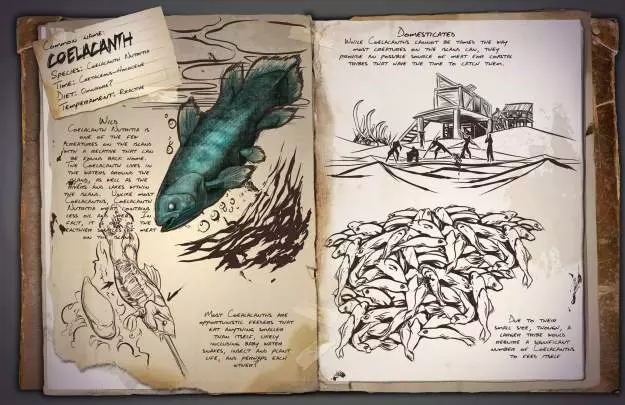 Common Name:
COELACANTH
Species: Coelacanth Nutritia
Time: Cretaceous-Holocene
Diet: Omnivore?
Temperament: Reactive
Wild
Coelacanth Nutritia is
one of the few
creatures on the island
with a relative that can
be found back home.
The Coelacanth lives in
the waters around the
island, as well as the
rivers and lakes within
the island. Unlike most
Coelacanths, Coelacanth
Nutritia meat contains
less oil and In
fact, it is one of the
healthier sources of meat
on the island
Most Coelacanths are
opportunistic feeders that
eat anything smaller
than itself, likely
including baby water
snakes, insect and plant
life, and perhaps each
other!
Domesticated
While Coelacanths cannot be tamed the way
most creatures on the island can, they
provide an possible source of meat for coastal
tribes that have the time to catch them.
Due to their
small size, though, a
larger tribe would
require a significant
number of Coelacanths
to feed itself